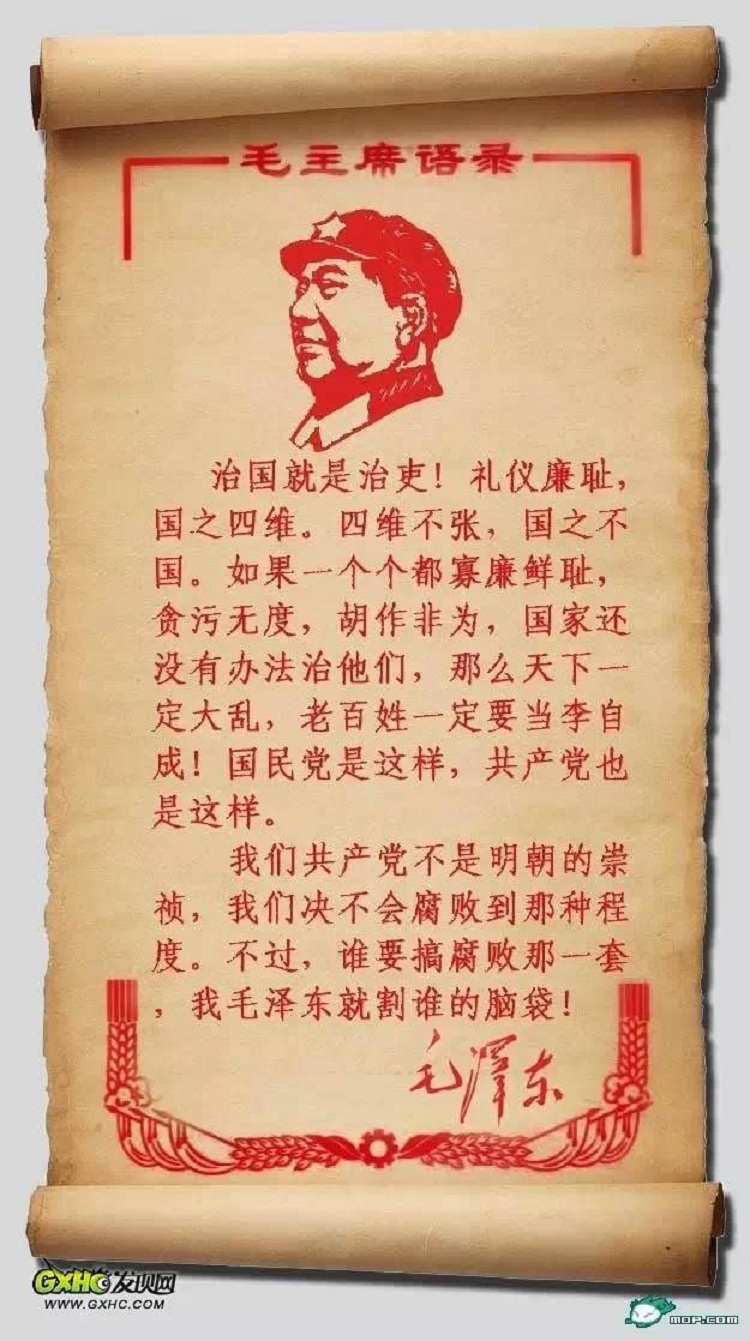 毛主席语录
治国就是治吏！礼仪廉耻，
国之四维。四维不张，国之不
国。如果一个个都寡廉鲜耻，
贪污无度，胡作非为，国家还
没有办法治他们，那么天下一
定大乱，老百姓一定要当李自
成！国民党是这样，共产党也
是这样。
我们共产党不是明朝的崇
祯，我们决不会腐败到那种程
度。不过，谁要搞腐败那一套
，我毛泽东就割谁的脑袋！
毛澤东
GXHC发现网
WWW.GXHC.COM
MOP.COM